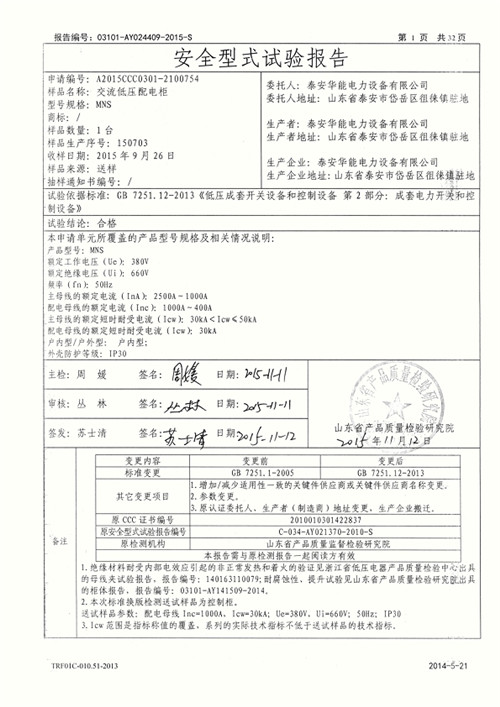 报告编号：03101-AY024409-2015-S
第 1 页 共32页
安全型式试验报告
申请编号：A2015CCC0301-2100754
样品名称：交流低压配电柜
型号规格：MNS
商标：/
样品数量：1台
样品生产序号：150703
收样日期：2015年9月26日
样品来源：送样
抽样通知书编号：/
委托人：泰安华能电力设备有限公司
委托人地址：山东省泰安市岱岳区徂徕镇驻地
生产者：泰安华能电力设备有限公司
生产者地址：山东省泰安市岱岳区徂徕镇驻地
生产企业：泰安华能电力设备有限公司
生产企业地址：山东省泰安市岱岳区徂徕镇驻地
试验依据标准：GB 7251.12-2013《低压成套开关设备和控制设备 第2部分：成套电力开关和控
制设备》
试验结论：合格
本申请单元所覆盖的产品型号规格及相关情况说明：
产品型号：MNS
额定工作电压（Ue）：380V
额定绝缘电压（Ui）：660V
频率（fn）：50Hz
主母线的额定电流（InA）：2500A～1000A
配电母线的额定电流（Inc）：1000A～400A
主母线的额定短时耐受电流（Icw）：30kA<Icw≤50kA
配电母线的额定短时耐受电流（Icw）：30kA
户内型/户外型：户内型；
外壳防护等级：IP30
主检：周 媛 签名：周媛 日期：2015-11-11
审核：丛 林 签名：丛林 日期：2015-11-11
签发：苏士清 签名：苏士清 日期：2015-11-12
山东省产品质量检验研究院
山东省产品质量检验研究院
2015年11月12日
备注
变更内容 变更前 变更后
标准变更 GB 7251.1-2005 GB 7251.12-2013
其它变更项目
1.增加/减少适用性一致的关键件供应商或关键件供应商名称变更.
2.参数变更.
3.原认证委托人、生产者（制造商）地址变更，生产企业搬迁.
原 CCC 证书编号 2010010301422837
原安全型式试验报告编号 C-034-AY021370-2010-S
原检测机构 山东省产品质量监督检验研究院
本报告需与原检测报告一起阅读方有效
1.绝缘材料耐受内部电效应引起的非正常发热和着火的验证见浙江省低压电器产品质量检验中心出具
的母线夹试验报告，报告编号：140163110079;耐腐蚀性、提升试验见山东省产品质量检验研究院出具
的柜体报告，报告编号：03101-AY141509-2014.
2.本次标准换版检测送试样品为控制柜.
送试样品参数：配电母线 Inc=1000A，Icw=30kA；Ue=380V、Ui=660V；50Hz；IP30
3.Icw 范围是指标称值的覆盖，系列的实际技术指标不低于送试样品的技术指标.
TRF01C-010.51-2013
2014-5-21